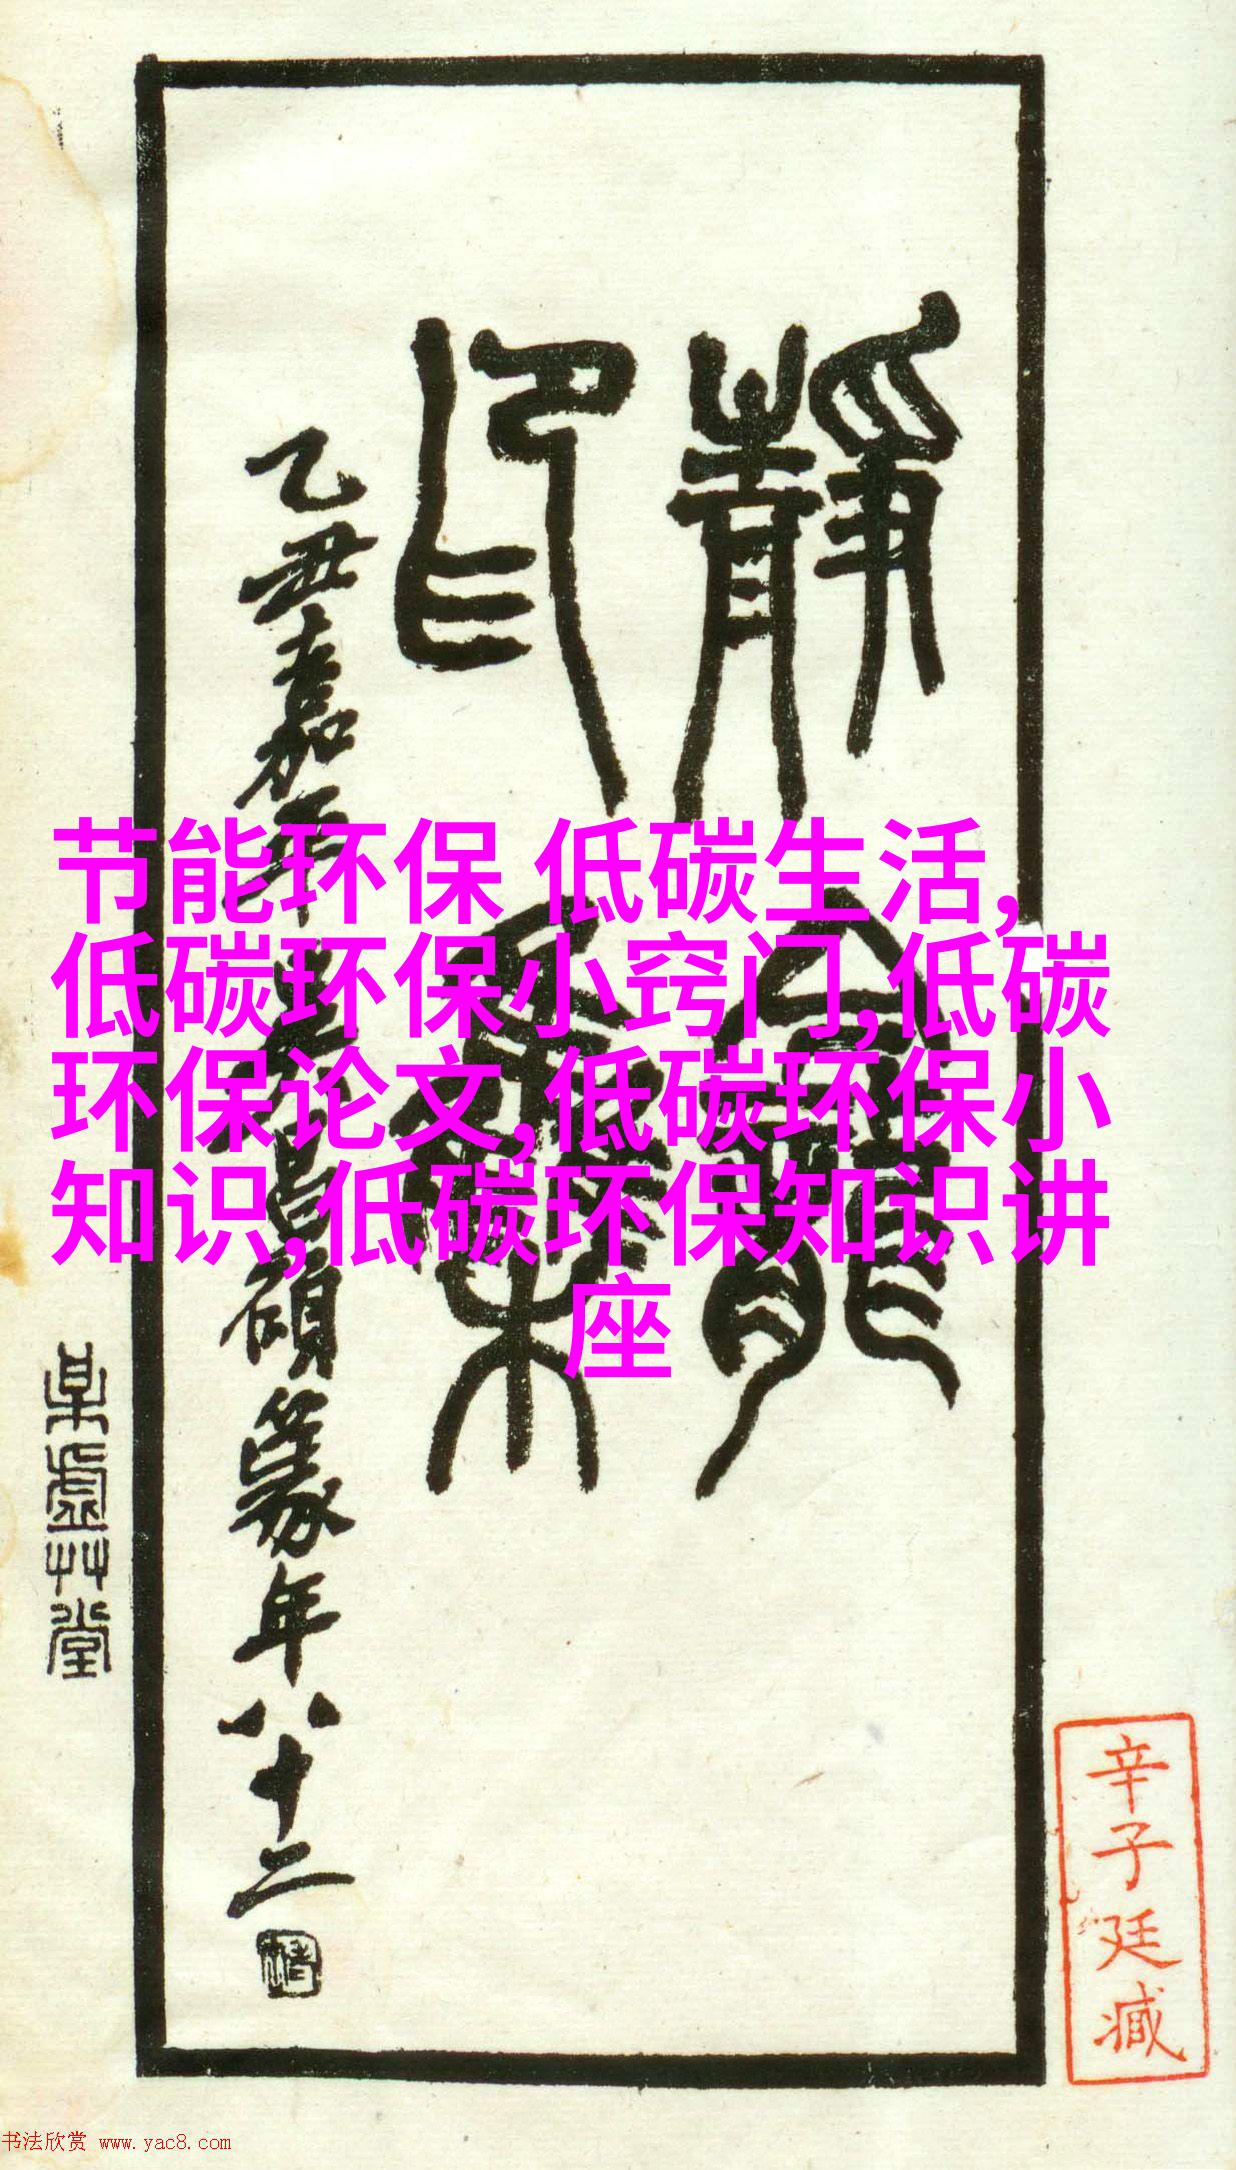 节能环保 低碳生活,
低碳环保小窍门,低碳
环保论文,低碳环保小
知识,低碳环保知识讲
座
静龕
印集
乙丑嘉平
昌碩篆年八十二
某虚艸堂
辛子廷藏
书法欣赏 www.yac8.com